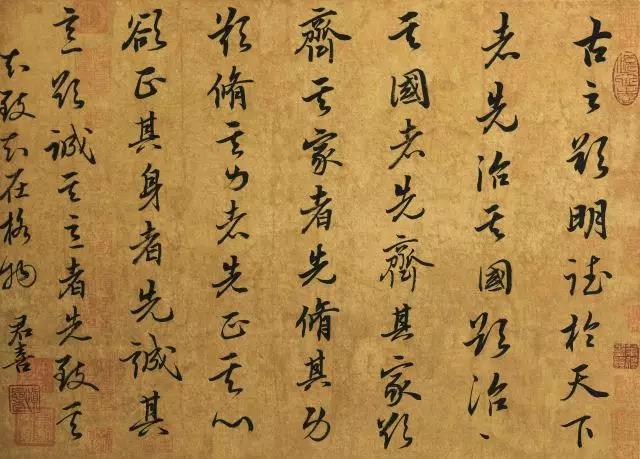 古之欲明德於天下
者先治其國欲治、
其國者先齊其家欲
齊其家者先脩其身
欲脩其身者先正其心
欲正其身者先誠其
意欲誠其意者先致其
知致知在格物 君喜